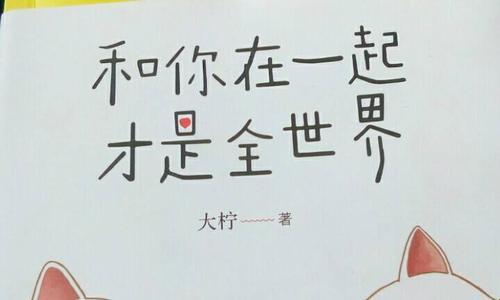 和你在一起
才是全世界
大柠——著